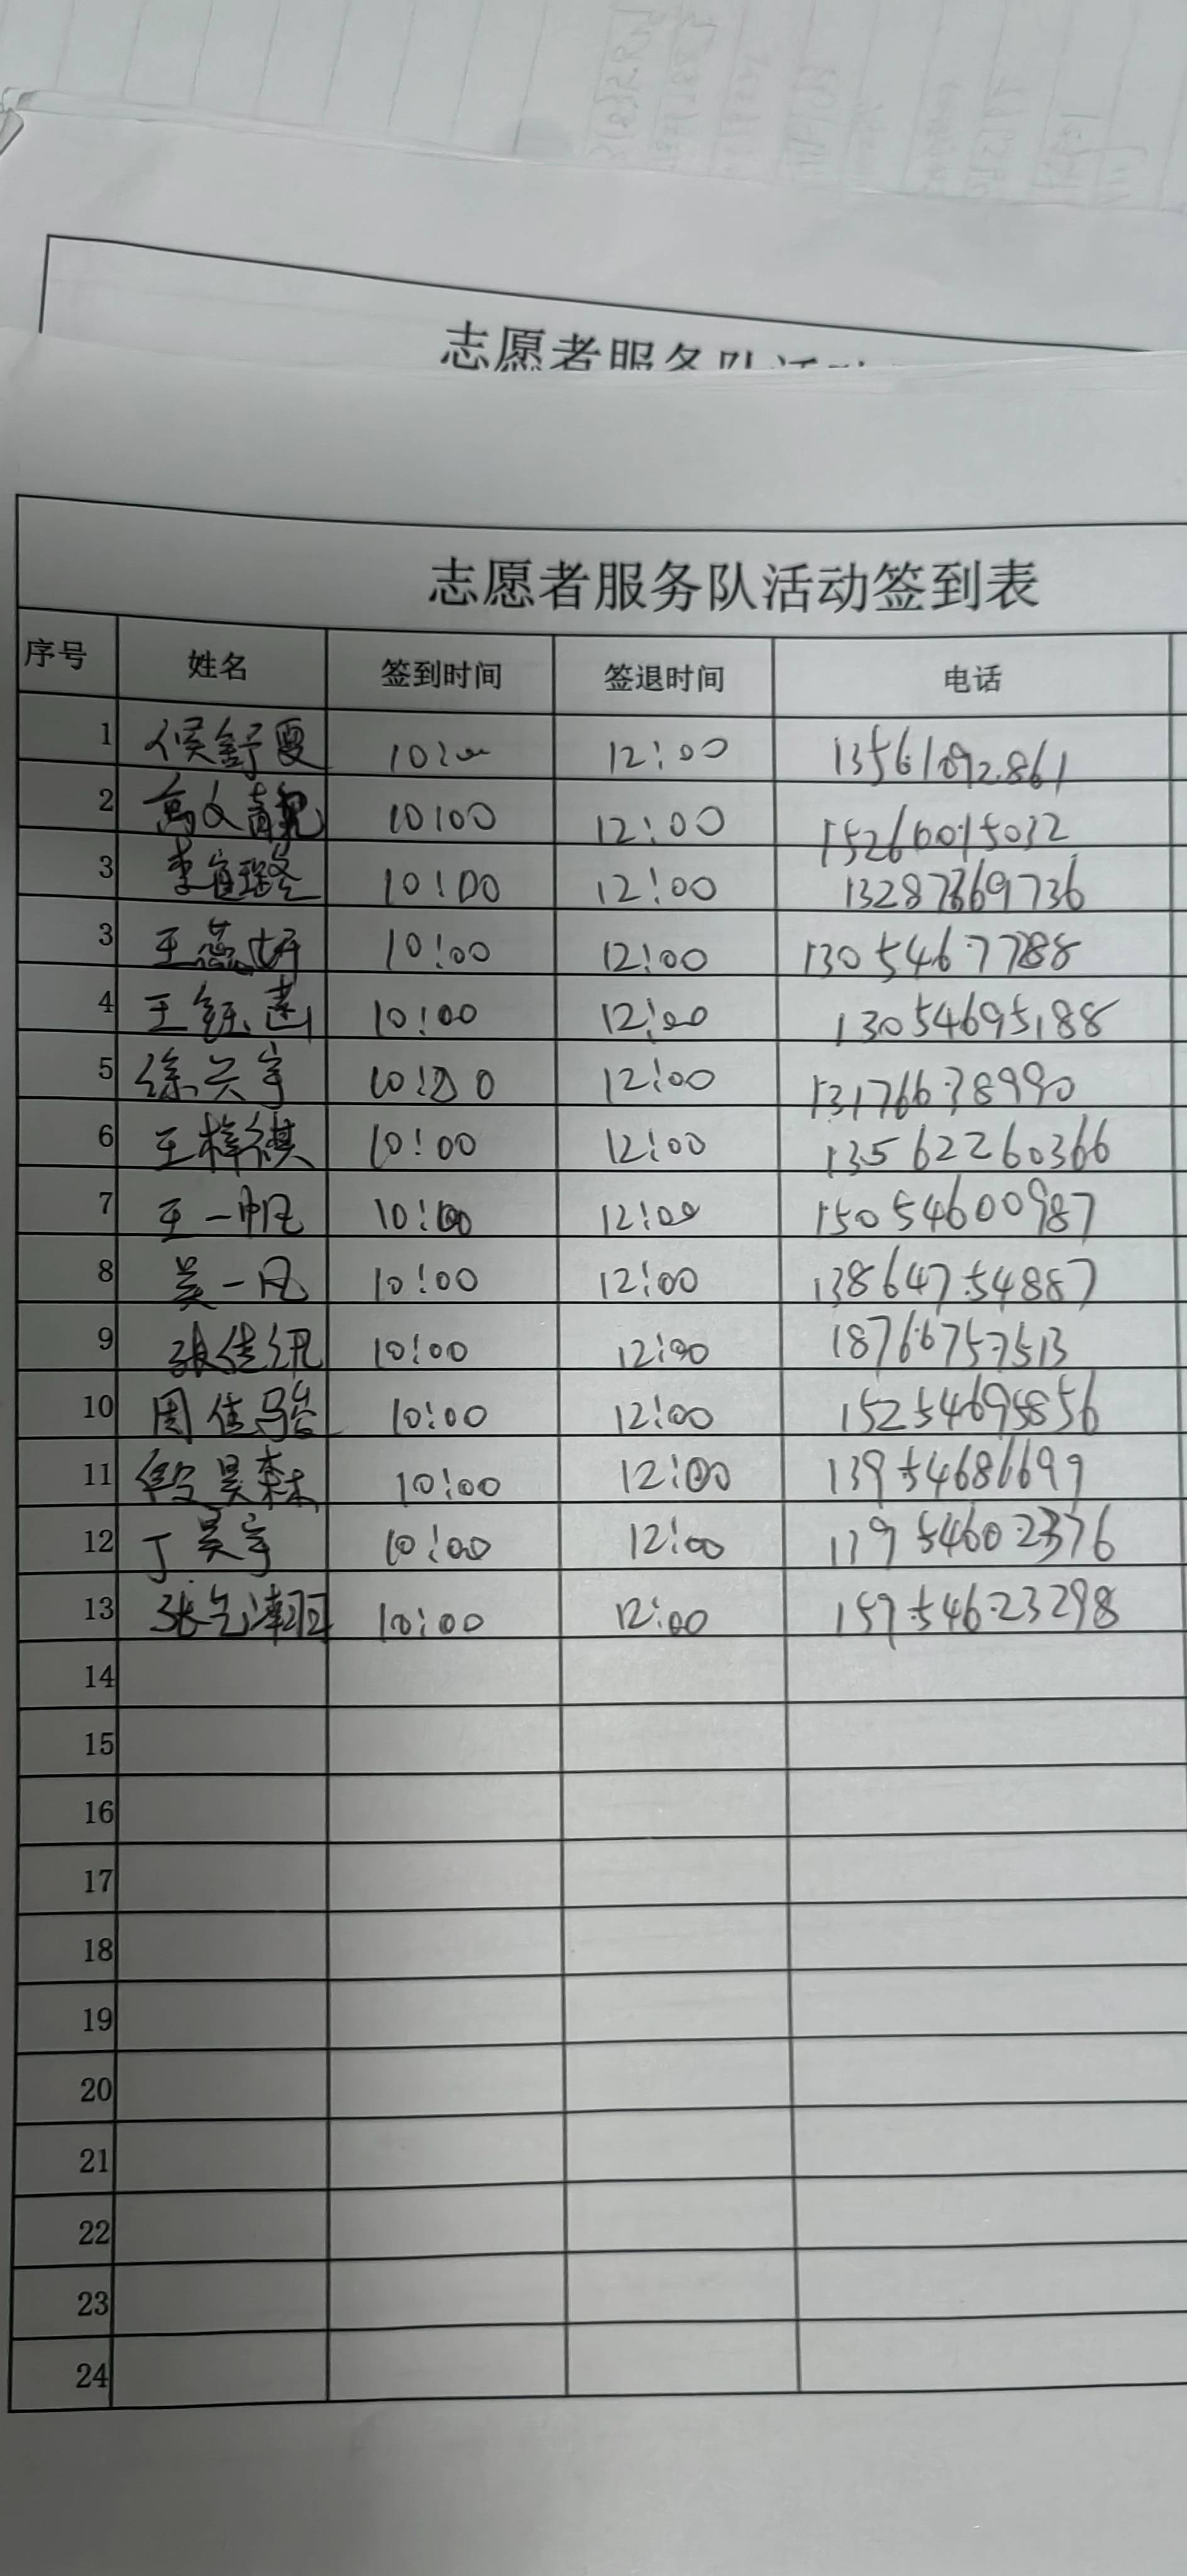 志愿者服务队活
志愿者服务队活动签到表
序号 姓名 签到时间 签退时间 电话
1 侯舒夏 10:00 12:00 13561092861
2 高文靓 10:00 12:00 15266015032
3 李宜璐 10:00 12:00 13287369736
3 王蕊妤 10:00 12:00 13054677288
4 王钰 10:00 12:00 13054695188
5 徐兴宇 10:00 12:00 13176638990
6 王梓祺 10:00 12:00 13562260366
7 王一帆 10:00 12:00 15054600987
8 吴一凡 10:00 12:00 13864754887
9 张佳 10:00 12:00 18766757513
10 周佳骀 10:00 12:00 15254695856
11 昊森 10:00 12:00 13954686699
12 丁昊宇 10:00 12:00 13954602376
13 张 10:00 12:00 15954623298
14
15
16
17
18
19
20
21
22
23
24